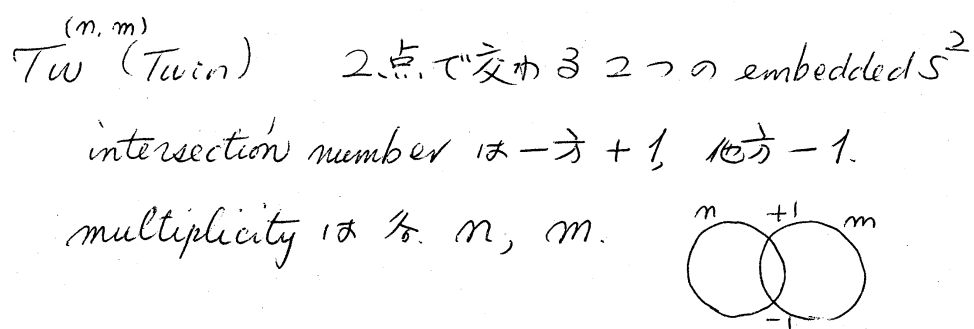 (n, m)
Tw (Twin) 2点で交わる2つの embedded S²
intersection number は一方 +1, 他方 −1.
multiplicity は各 n, m.
n +1 m
−1